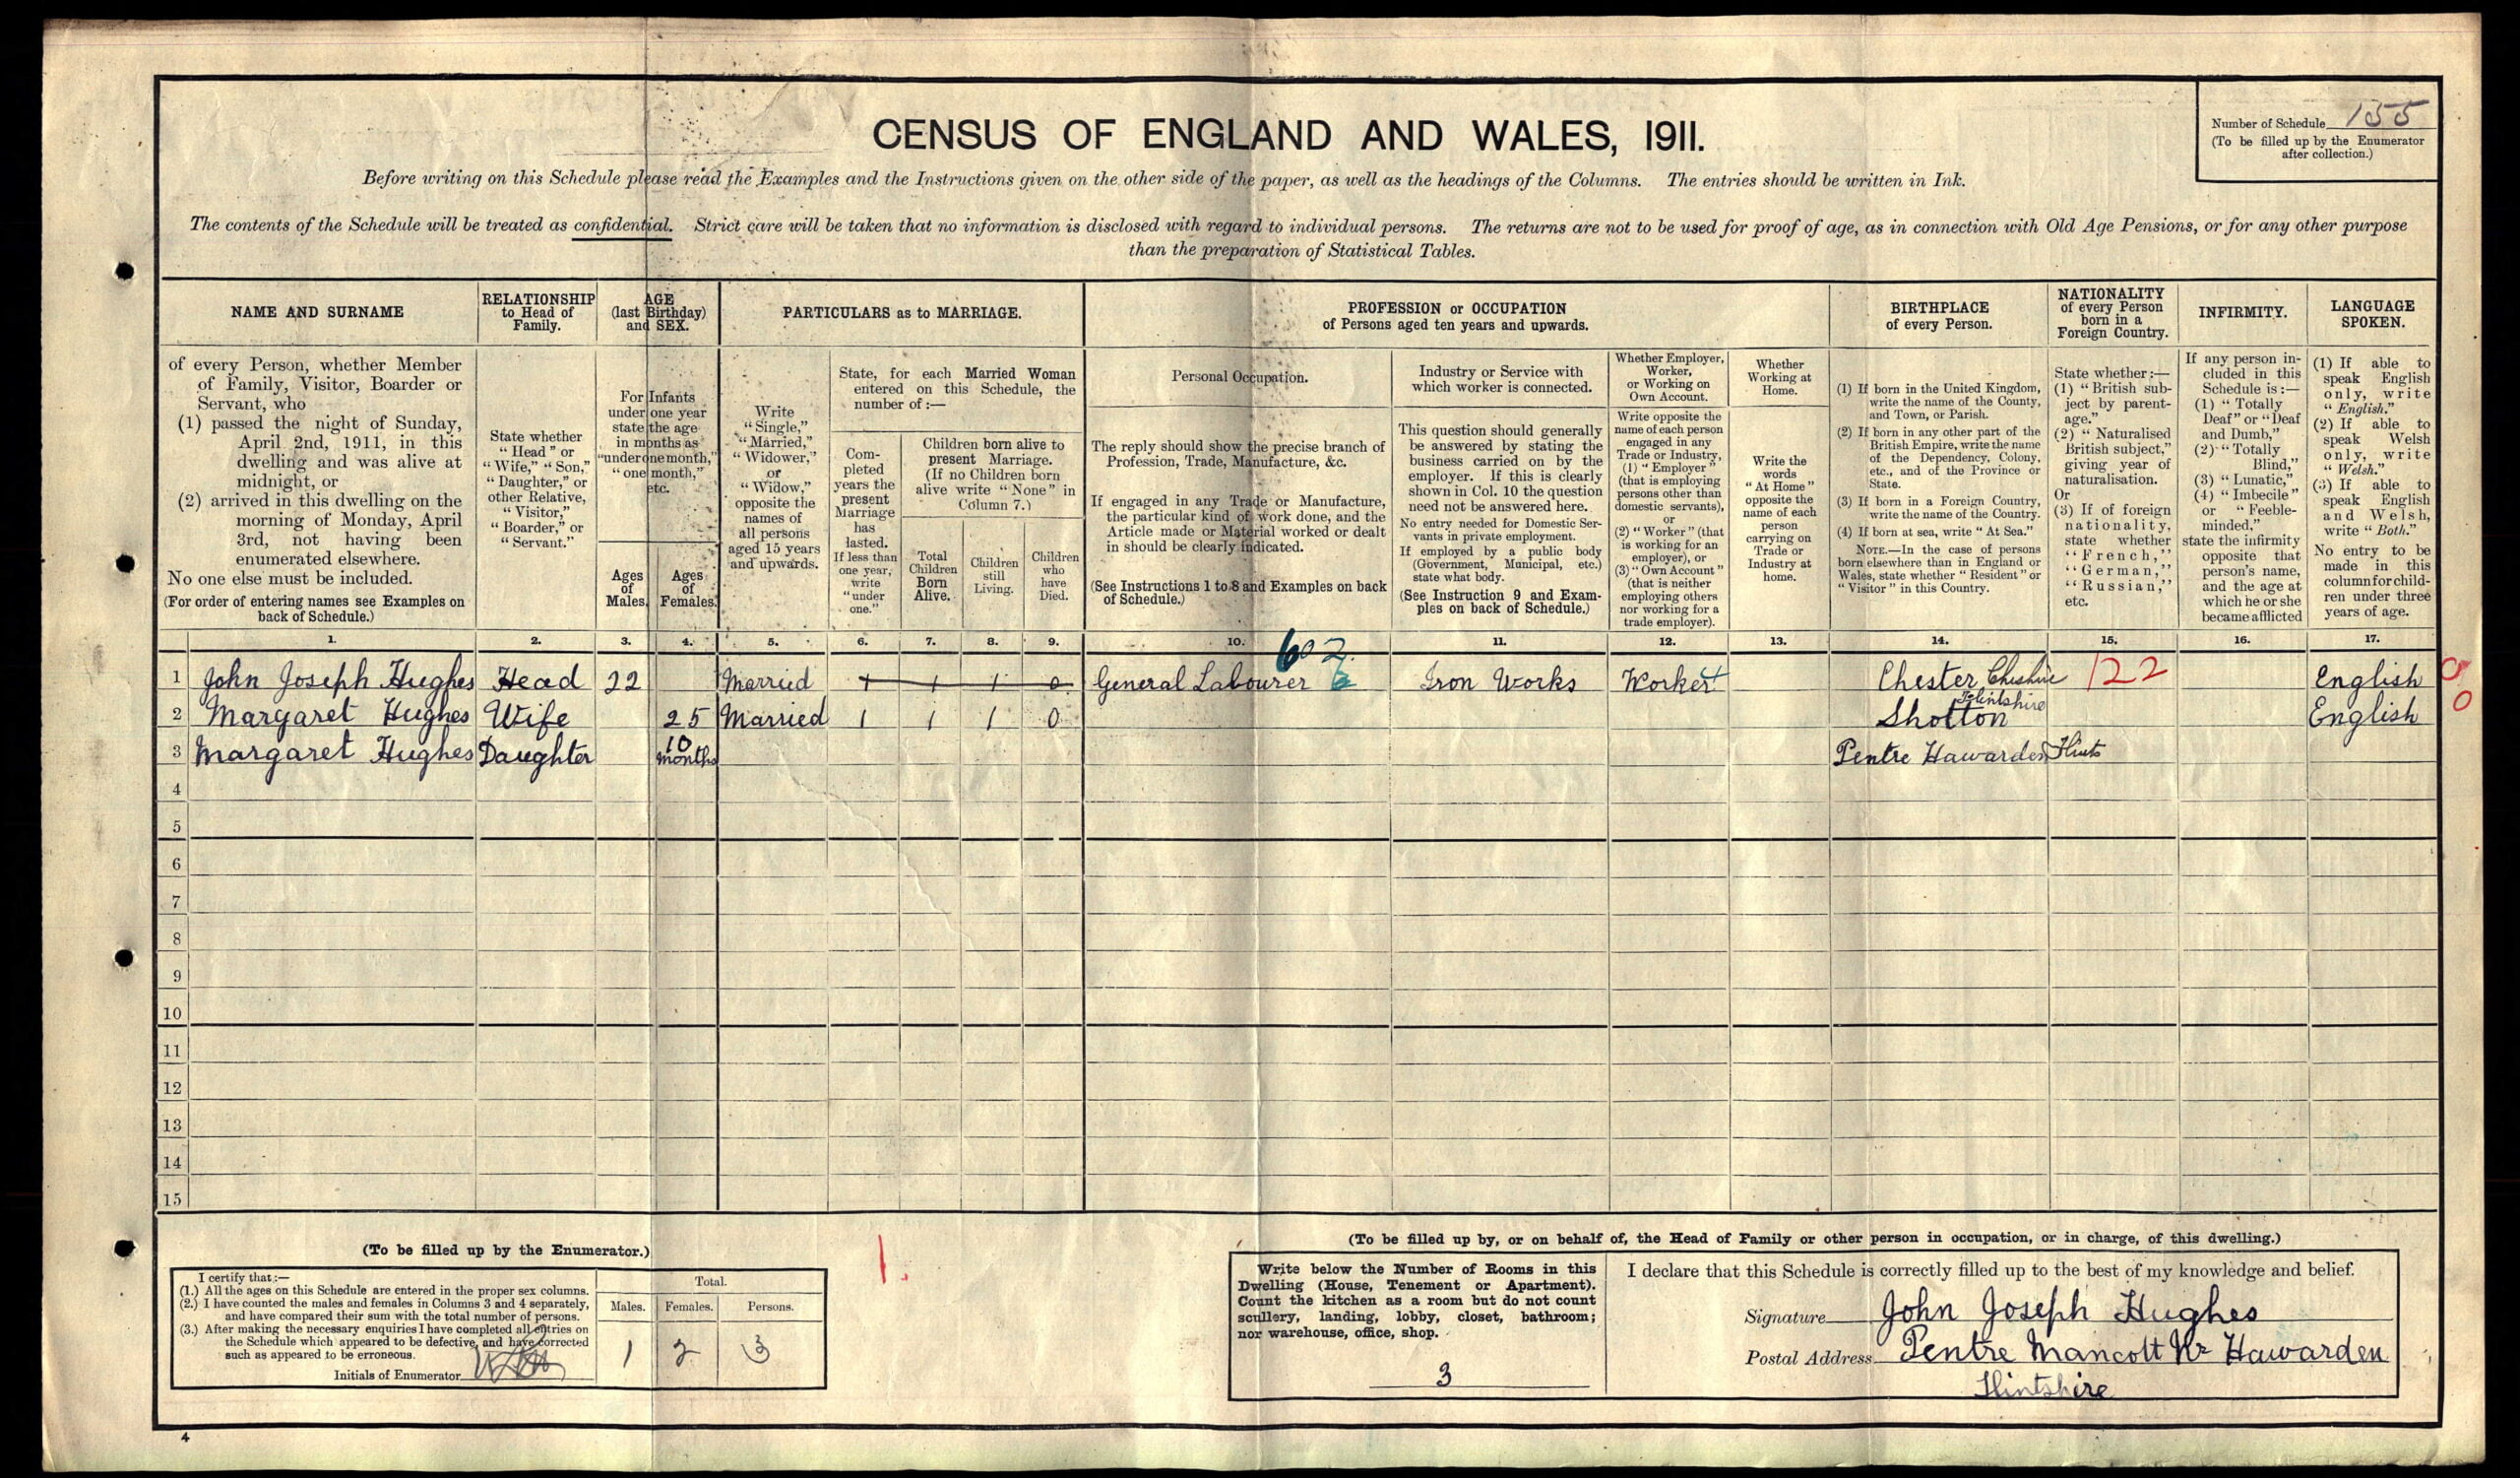 Number of Schedule 155
(To be filled up by the Enumerator
after collection.)
CENSUS OF ENGLAND AND WALES, 1911.
Before writing on this Schedule please read the Examples and the Instructions given on the other side of the paper, as well as the headings of the Columns. The entries should be written in Ink.
The contents of the Schedule will be treated as confidential. Strict care will be taken that no information is disclosed with regard to individual persons. The returns are not to be used for proof of age, as in connection with Old Age Pensions, or for any other purpose
than the preparation of Statistical Tables.
NAME AND SURNAME
RELATIONSHIP
to Head of
Family.
AGE
(last Birthday)
and SEX.
PARTICULARS as to MARRIAGE.
PROFESSION or OCCUPATION
of Persons aged ten years and upwards.
BIRTHPLACE
of every Person.
NATIONALITY
of every Person
born in a
Foreign Country.
INFIRMITY.
LANGUAGE
SPOKEN.
of every Person, whether Member
of Family, Visitor, Boarder or
Servant, who
(1) passed the night of Sunday,
April 2nd, 1911, in this
dwelling and was alive at
midnight, or
(2) arrived in this dwelling on the
morning of Monday, April
3rd, not having been
enumerated elsewhere.
No one else must be included.
(For order of entering names see Examples on
back of Schedule.)
State whether
"Head" or
"Wife," "Son,"
"Daughter," or
other Relative,
"Visitor,"
"Boarder," or
"Servant."
For Infants
under one year
state the age
in months as
"under one month,"
"one month,"
etc.
Ages
of
Males.
Ages
of
Females.
Write
"Single,"
"Married,"
"Widower,"
or
"Widow,"
opposite the
names of
all persons
aged 15 years
and upwards.
State, for each Married Woman
entered on this Schedule, the
number of :—
Com-
pleted
years the
present
Marriage
has
lasted.
If less than
one year,
write
"under
one."
Children born alive to
present Marriage.
(If no Children born
alive write "None" in
Column 7.)
Total
Children
Born
Alive.
Children
still
Living.
Children
who
have
Died.
Personal Occupation.
The reply should show the precise branch of
Profession, Trade, Manufacture, &c.
If engaged in any Trade or Manufacture,
the particular kind of work done, and the
Article made or Material worked or dealt
in should be clearly indicated.
(See Instructions 1 to 8 and Examples on back
of Schedule.)
Industry or Service with
which worker is connected.
This question should generally
be answered by stating the
business carried on by the
employer. If this is clearly
shown in Col. 10 the question
need not be answered here.
No entry needed for Domestic Ser-
vants in private employment.
If employed by a public body
(Government, Municipal, etc.)
state what body.
(See Instruction 9 and Exam-
ples on back of Schedule.)
Whether Employer,
Worker,
or Working on
Own Account.
Write opposite the
name of each person
engaged in any
Trade or Industry,
(1) "Employer"
(that is employing
persons other than
domestic servants),
or
(2) "Worker" (that
is working for an
employer), or
(3) "Own Account"
(that is neither
employing others
nor working for a
trade employer).
Whether
Working at
Home.
Write the
words
"At Home"
opposite the
name of each
person
carrying on
Trade or
Industry at
home.
(1) If born in the United Kingdom,
write the name of the County,
and Town, or Parish.
(2) If born in any other part of the
British Empire, write the name
of the Dependency, Colony,
etc., and of the Province or
State.
(3) If born in a Foreign Country,
write the name of the Country.
(4) If born at sea, write "At Sea."
NOTE.—In the case of persons
born elsewhere than in England or
Wales, state whether "Resident" or
"Visitor" in this Country.
State whether :—
(1) "British sub-
ject by parent-
age."
(2) "Naturalised
British subject,"
giving year of
naturalisation.
Or
(3) If of foreign
nationality,
state whether
"French,"
"German,"
"Russian,"
etc.
If any person in-
cluded in this
Schedule is :—
(1) "Totally
Deaf" or "Deaf
and Dumb,"
(2) "Totally
Blind,"
(3) "Lunatic,"
(4) "Imbecile"
or "Feeble-
minded,"
state the infirmity
opposite that
person's name,
and the age at
which he or she
became afflicted
(1) If able to
speak English
only, write
"English."
(2) If able to
speak Welsh
only, write
"Welsh."
(3) If able to
speak English
and Welsh,
write "Both."
No entry to be
made in this
column for child-
ren under three
years of age.
1. 2. 3. 4. 5. 6. 7. 8. 9. 10. 11. 12. 13. 14. 15. 16. 17.
602
1 John Joseph Hughes Head 22 Married 1 1 1 0 General Labourer 6 Iron Works Worker Chester Cheshire 122 English 0
2 Margaret Hughes Wife 25 Married 1 1 1 0 Shotton Flintshire English 0
3 Margaret Hughes Daughter 10 months Pentre Hawarden Flints
4
5
6
7
8
9
10
11
12
13
14
15
(To be filled up by the Enumerator.)
I certify that :—
(1.) All the ages on this Schedule are entered in the proper sex columns.
(2.) I have counted the males and females in Columns 3 and 4 separately,
and have compared their sum with the total number of persons.
(3.) After making the necessary enquiries I have completed all entries on
the Schedule which appeared to be defective, and have corrected
such as appeared to be erroneous.
Initials of Enumerator
Total.
Males. Females. Persons.
1 2 3
1.
(To be filled up by, or on behalf of, the Head of Family or other person in occupation, or in charge, of this dwelling.)
Write below the Number of Rooms in this
Dwelling (House, Tenement or Apartment).
Count the kitchen as a room but do not count
scullery, landing, lobby, closet, bathroom;
nor warehouse, office, shop.
3
I declare that this Schedule is correctly filled up to the best of my knowledge and belief.
Signature John Joseph Hughes
Postal Address Pentre Mancott Nr Hawarden
Flintshire
4